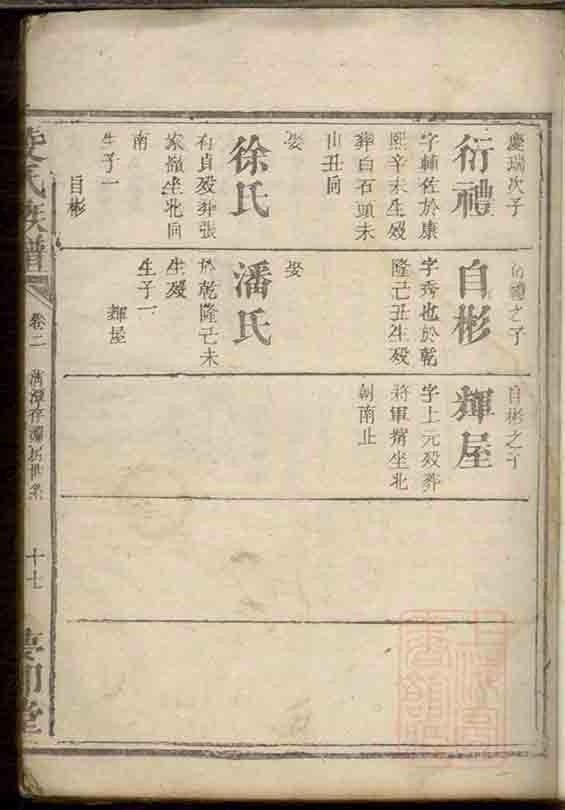 慶瑞次子
衍禮
字輔佐於康
熙辛未生殁
葬白石頭未
山丑向
娶
徐氏
有貞殁葬張
家嶺坐北向
南
生子一
自彬
衍禮之子
自彬
字秀也於乾
隆己丑生殁
娶
潘氏
於乾隆己未
生殁
生子一
輝屋
自彬之子
輝屋
字上元殁葬
將軍壻坐北
朝南止
氏族譜
卷二
十七
堂